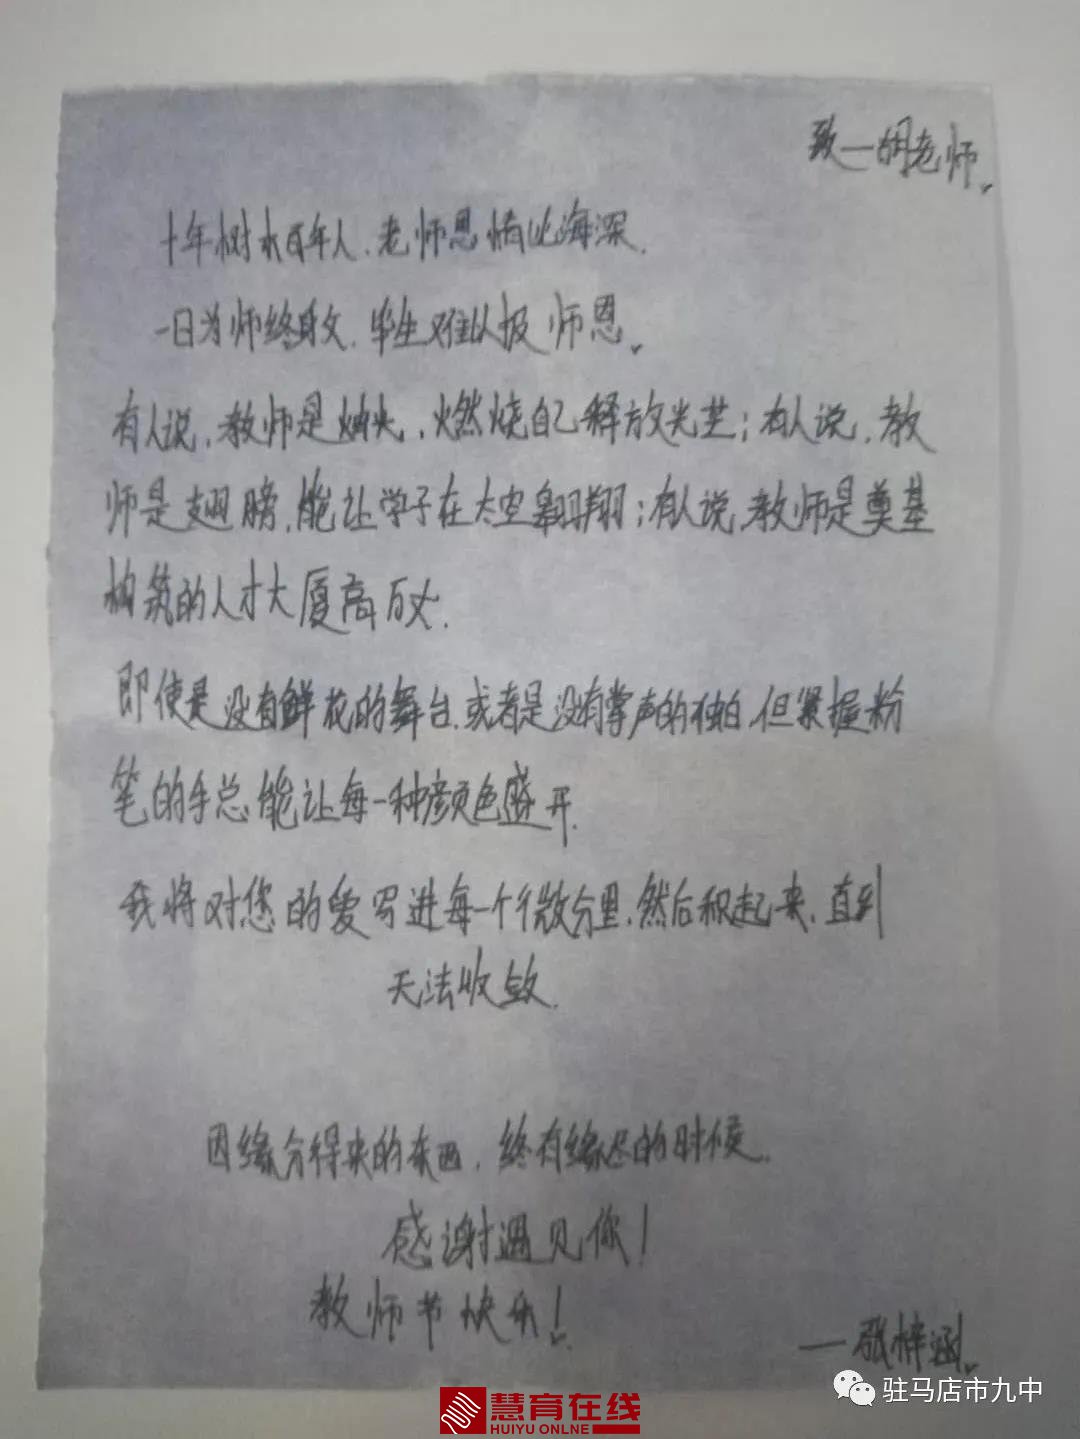 致—胡老师
十年树木百年人.老师恩情比海深.
一日为师终身父.毕生难以报师恩.
有人说,教师是烛火,燃烧自己释放光芒;有人说,教
师是翅膀,能让学子在太空翱翔;有人说,教师是奠基
构筑的人才大厦高万丈.
即使是没有鲜花的舞台,或者是没有掌声的独白,但紧握粉
笔的手总能让每一种颜色盛开.
我将对您的爱写进每一个微分里,然后积起来,直到
无法收敛.
因缘分得来的东西,终有缘尽的时候.
感谢遇见你!
教师节快乐!
—张梓涵
驻马店市九中
慧育在线
HUIYU ONLNE